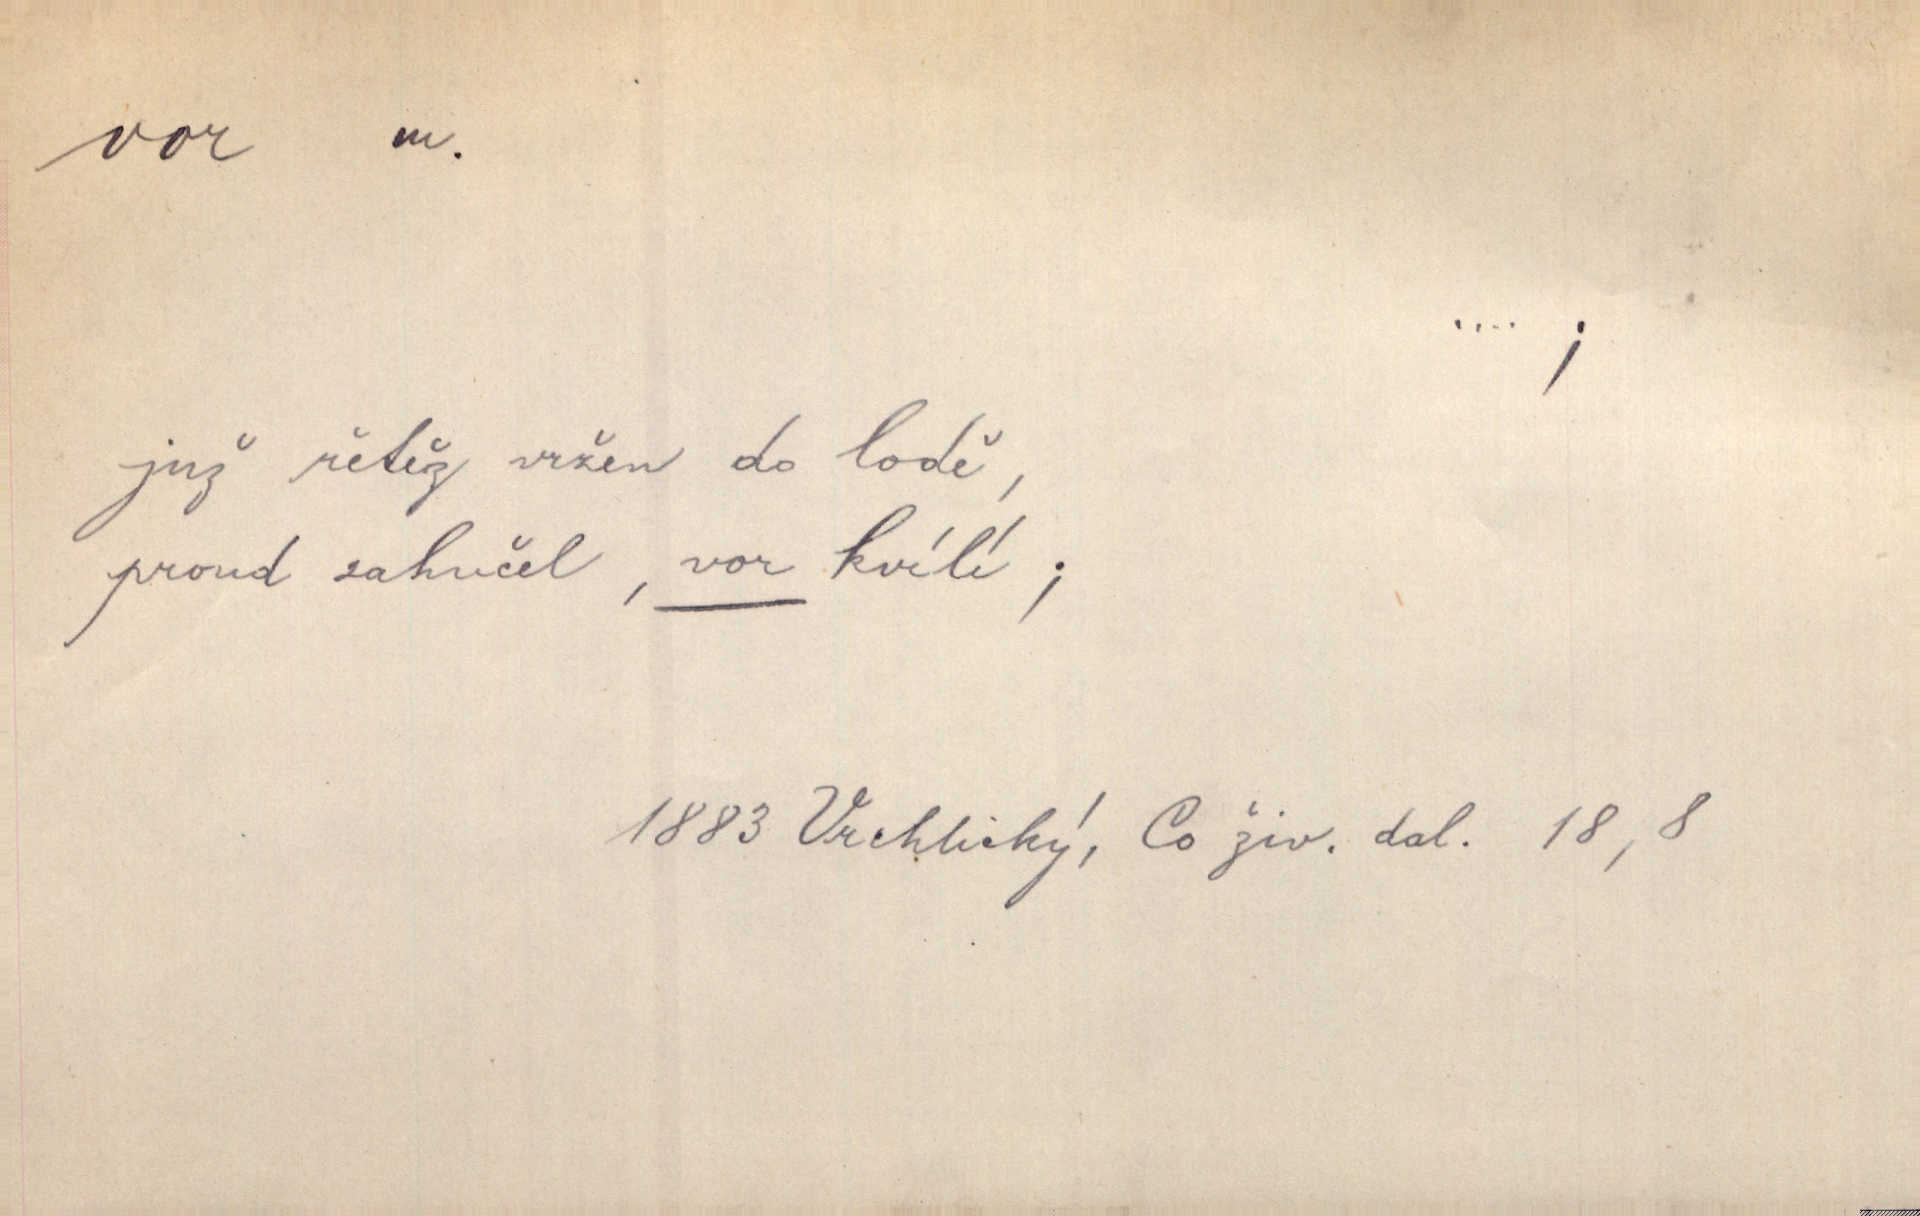 vor m.
.... ;
již řetěz vržen do lodě,
proud zahučel, vor kvílí;
1883 Vrchlický, Co živ. dal. 18,8